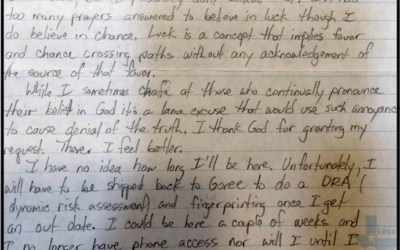 too many prayers answered to believe in luck though I
do believe in chance. Luck is a concept that implies favor
and chance crossing paths without any acknowledgement of
the source of that favor.
While I sometimes chafe at those who continually pronounce
their belief in God it's a lame excuse that would use such annoyance
to cause denial of the truth. I thank God for granting my
request. There. I feel better.
I have no idea how long I'll be here. Unfortunately, I
will have to be shipped back to Goree to do a DRA (
dynamic risk assessment) and fingerprinting once I get
an out date. I could be here a couple of weeks and
I no longer have phone access nor will I until I